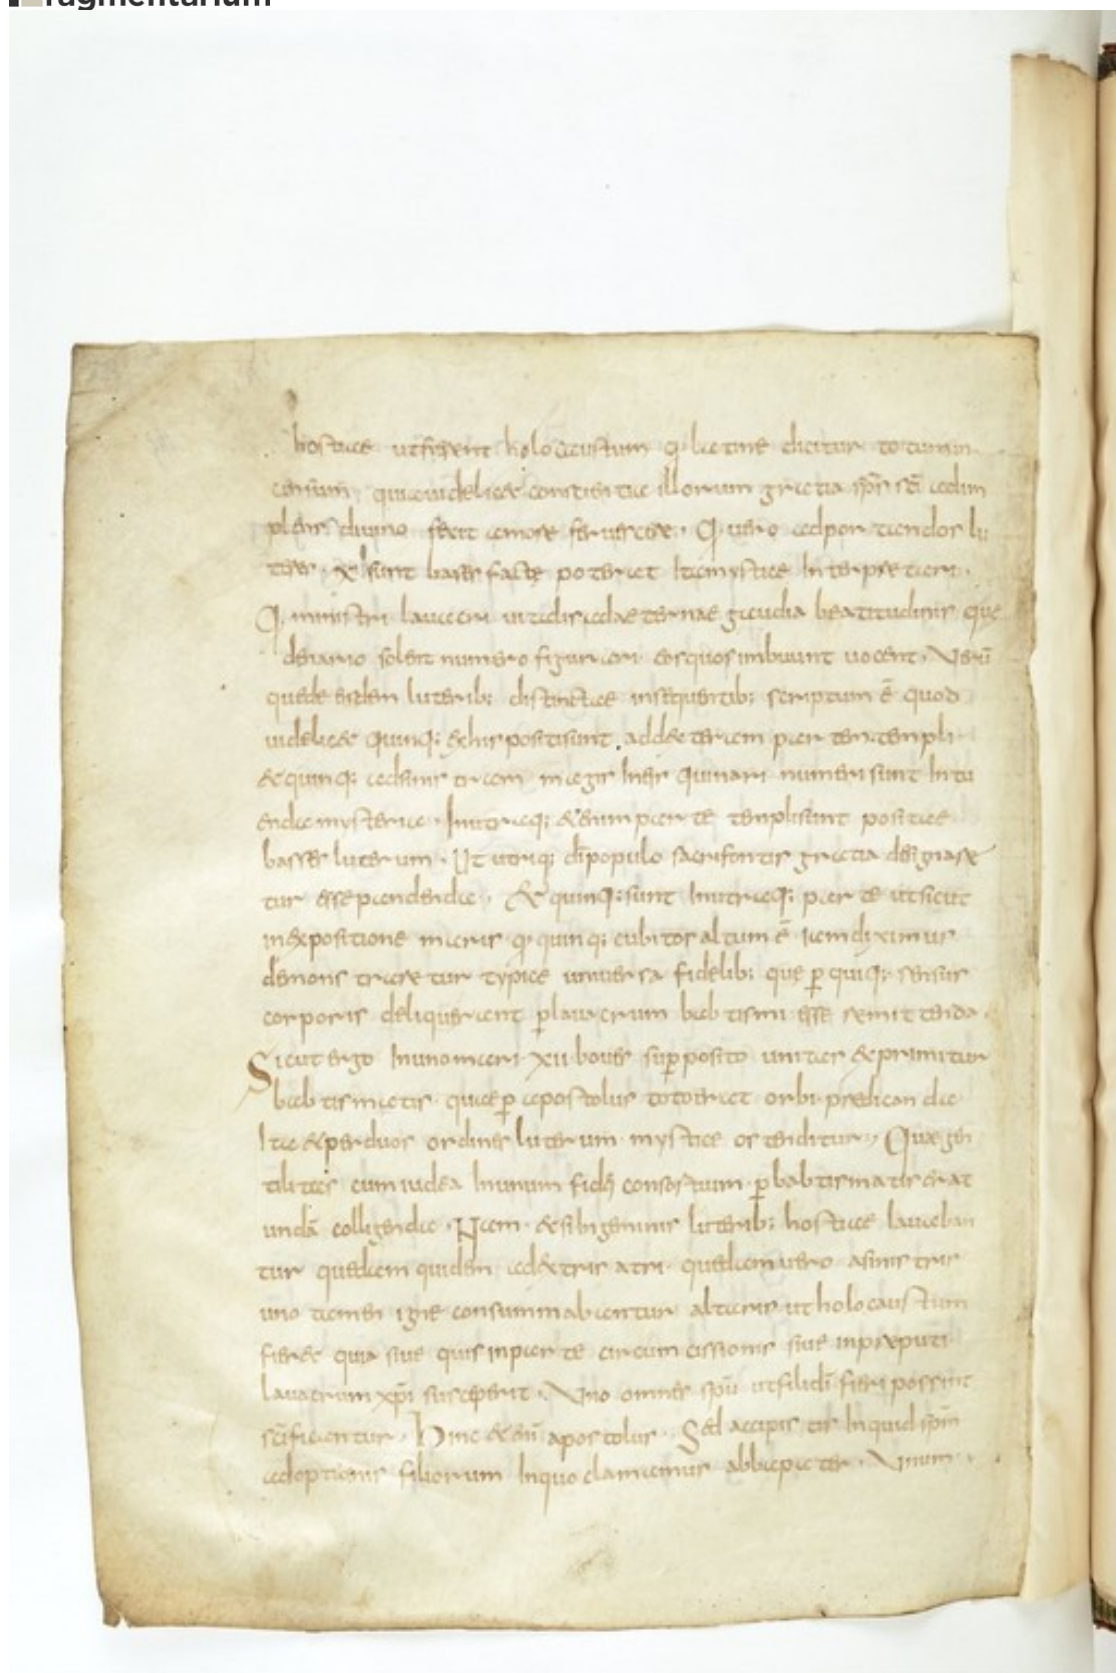 ragmentarium
hostiae ut fierent holocaustum qđ latine dicitur totum in
censum quia videlicet conscientia illorum gratia sp̄s sc̄i adim
plens divino fecit amore fervescere. Q vero ad portandos lu
teres x sunt bases facte poterat ita mystice interpretari.
Q ministri lavacri vite dis ad aeternae gaudia beatitudinis que
denario solent numero figurari eos quos imbuunt vocent. Verū
que de eisdem luterib; distincte in sequentib; scriptum ē quod
videlicet quinq; ex his positi sunt. ad dexteram partem templi
et quinq; ad sinistram magis in eis quinarii numeri sunt intu
enda mysteria. In utraq; etenim parte templi sunt positae
basses luterum. Ut utriq; dī populo sacri fontis gratia designare
tur esse pandenda. Et quinq; sunt in utraq; parte ut sicut
in expositione maris qđ quinq; cubitos altum ē iam diximus
demonstraretur typice universa fidelib; que p̄ quiq; sensus
corporis deliquerant p̄ lavacrum babtismi esse remittenda.
Sicut ergo in uno mari xii boves sup̄posito unitas exprimitur
babtismatis quae p̄ apostolus toto erat orbi predicanda
Ita et per duos ordines luterum mystice ostenditur, Quae gen
tilitas cum iudea in unum fidei consortium p̄ babtismatis erat
undā colligenda. Nam et si bigeminis luterib; hostiae lavaban
tur quedam quidem ad dextris atri quedam vero a sinistris
uno tamen igne consummabantur altaris ut holocaustum
fieret quia sive quis in parte circumcissionis sive in preputi
lavacrum xp̄i susceperit. Uno omnes sp̄u ut filii dī fieri possint
sc̄ificantur. Hinc et enī apostolus. Sed accepistis inquid sp̄m
adoptionis filiorum in quo clamamus abba pater. Unum.